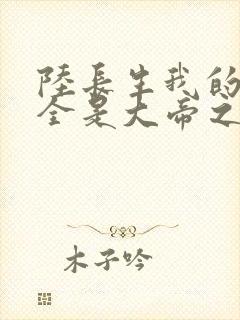 陸長生我的
全是大帝之
木子吟